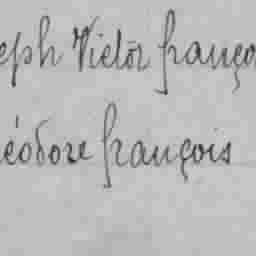 eph Victor franço
éodore françois